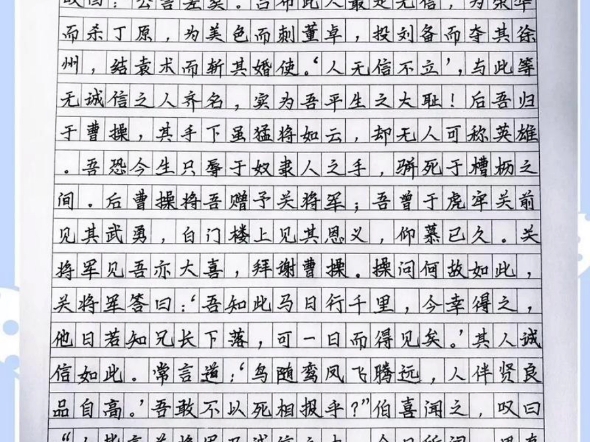 故曰：‘公言差矣。吕布此人最是无信，为荣华
而杀丁原，为美色而刺董卓，投刘备而夺其徐
州，结袁术而斩其婚使。‘人无信不立’，与此等
无诚信之人齐名，实为吾平生之大耻！后吾归
于曹操，其手下虽猛将如云，却无人可称英雄
。吾恐今生只辱于奴隶人之手，骈死于槽枥之
间。后曹操将吾赠予关将军；吾曾于虎牢关前
见其武勇，白门楼上见其恩义，仰慕已久。关
将军见吾亦大喜，拜谢曹操。操问何故如此，
关将军答曰：‘吾知此马日行千里，今幸得之，
他日若知兄长下落，可一日而得见矣。’其人诚
信如此。常言道：‘鸟随鸾凤飞腾远，人伴贤良
品自高。’吾敢不以死相报乎？”伯喜闻之，叹曰